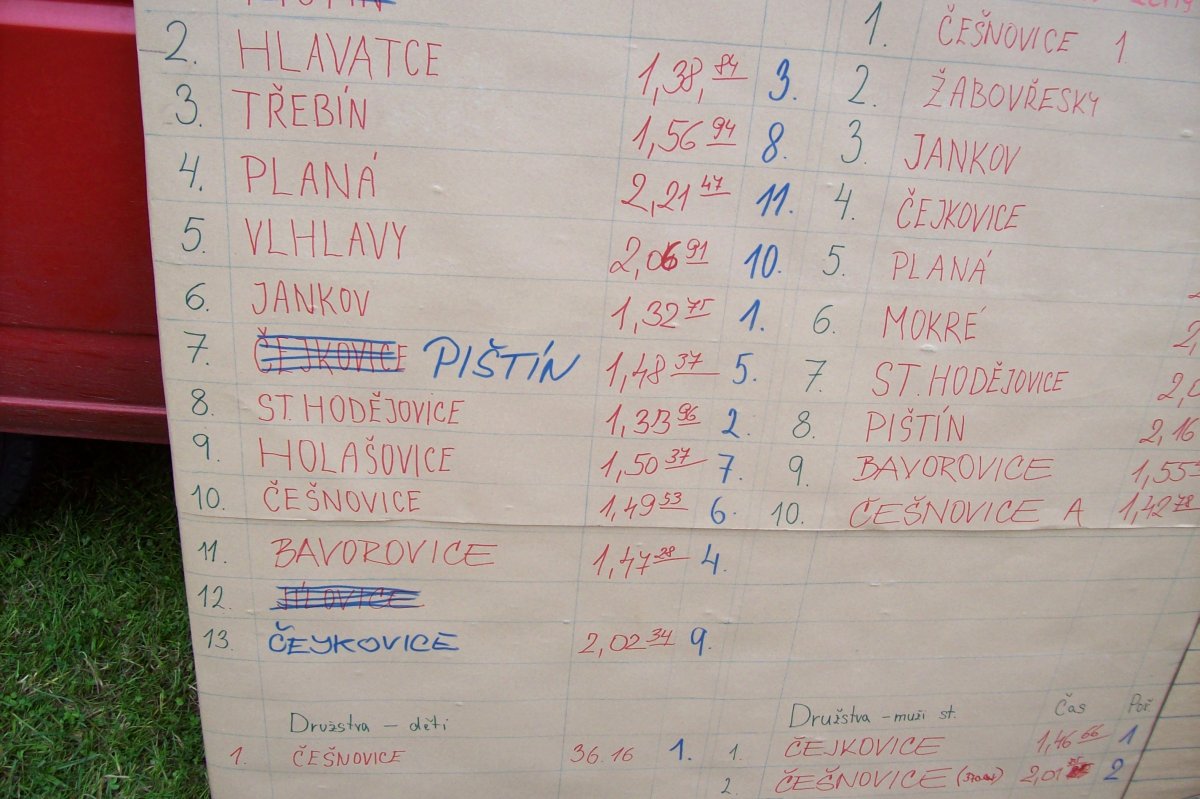 2. HLAVATCE 1,38,84 3.
3. TŘEBÍN 1,56 94 8.
4. PLANÁ 2,21 47 11.
5. VLHLAVY 2,06 91 10.
6. JANKOV 1,32 75 1.
7. ČEJKOVICE PIŠTÍN 1,48 37 5.
8. ST. HODĚJOVICE 1,33 96 2.
9. HOLAŠOVICE 1,50 37 7.
10. ČEŠNOVICE 1,49 53 6.
11. BAVOROVICE 1,47 28 4.
12.
13. ČEJKOVICE 2,02 34 9.
Družstva – děti
1. ČEŠNOVICE 36.16 1.
1. ČEŠNOVICE 1
2. ŽABOVŘESKY
3. JANKOV
4. ČEJKOVICE
5. PLANÁ
6. MOKRÉ
7. ST. HODĚJOVICE
8. PIŠTÍN 2,16
9. BAVOROVICE 1,55
10. ČEŠNOVICE A 1,42 78
Družstva – muži st. Čas Poř
1. ČEJKOVICE 1,46 66 1
2. ČEŠNOVICE 2,01 2